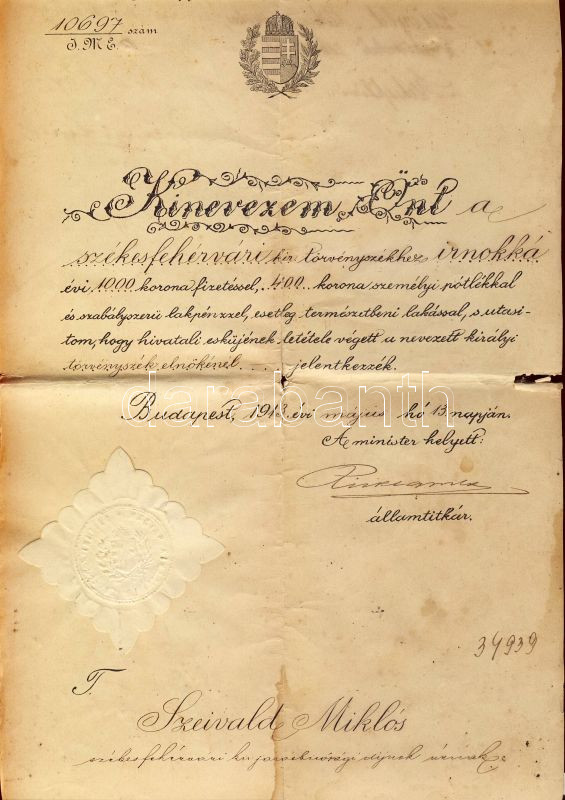 10697 szám
I. M. E.
Kinevezem Önt a
székesfehérvári kir. törvényszékhez irnokká
évi 1000 korona fizetéssel, 400 korona személyi pótlékkal
és szabályszerü lakpénzzel, esetleg természetbeni lakással, s utasi-
tom, hogy hivatali esküjének letétele végett a nevezett királyi
törvényszék elnökénél . . . jelentkezzék.
darabanth
Budapest, évi május hó 13 napján.
A minister helyett:
államtitkár.
34939
T.
Szeivald Miklós
székesfehérvári kir. dijnok úrnak.